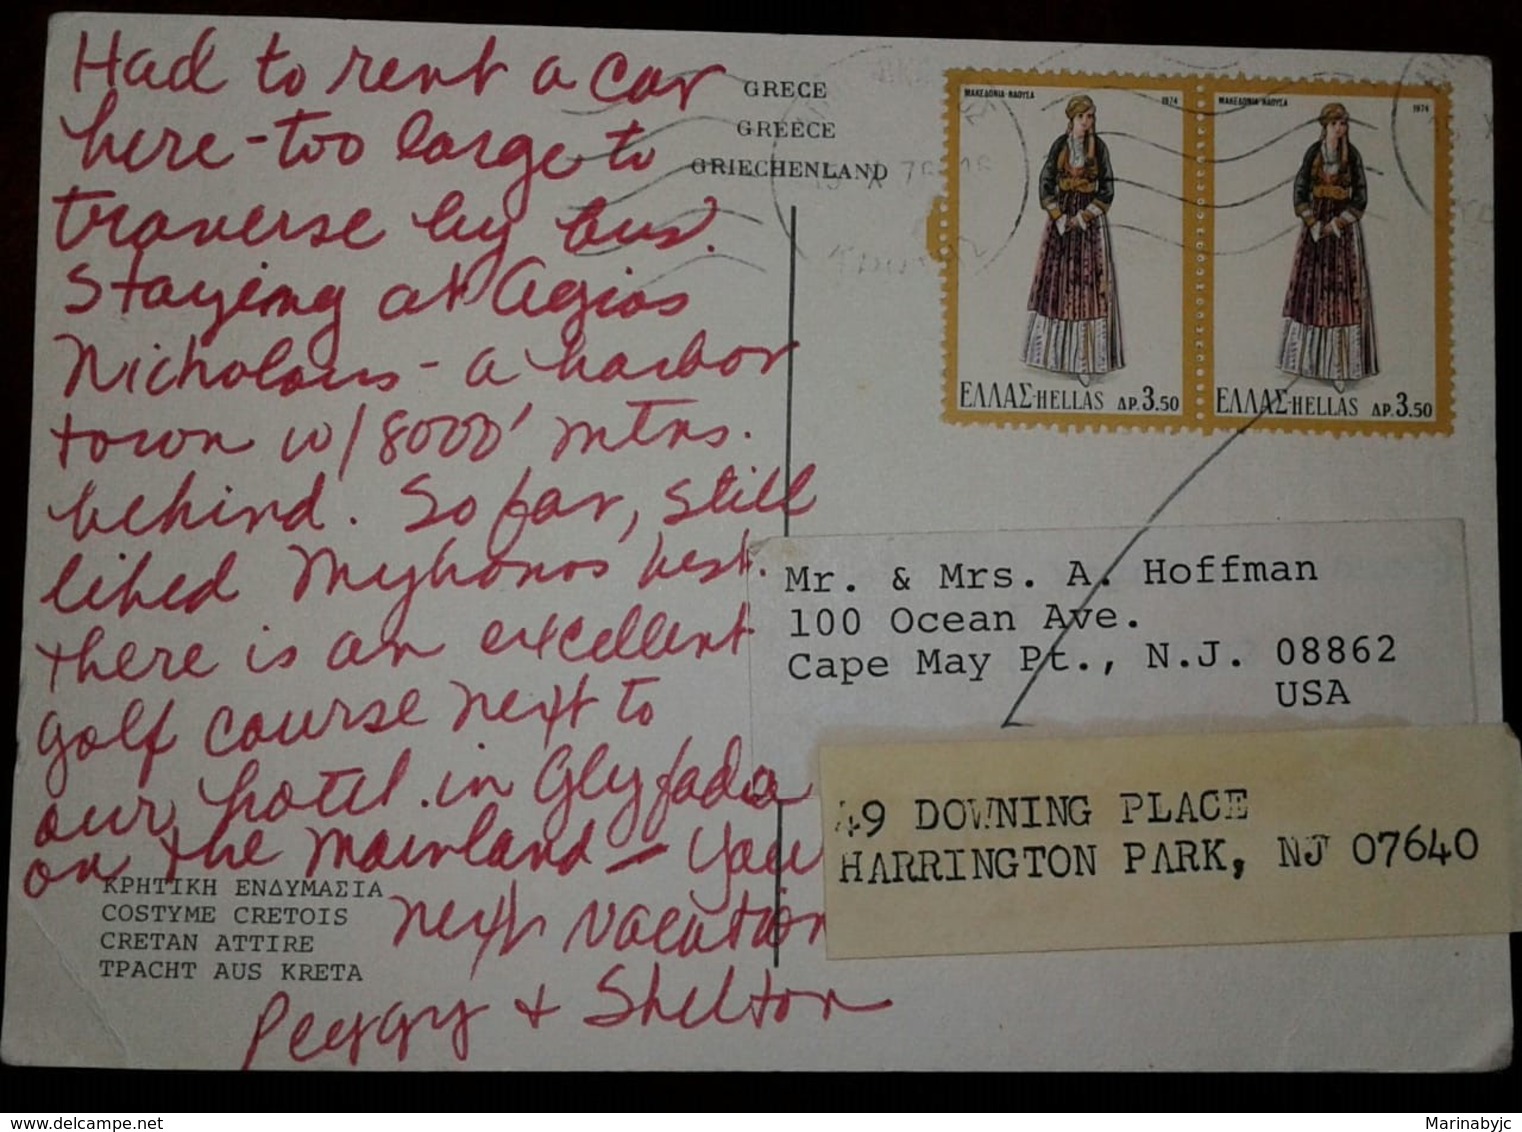 Had to rent a car
here - too large to
traverse by bus.
Staying at Agios
Nicholaus - a harbor
town w/ 8000' mtns.
behind. So far, still
liked Mykonos best.
There is an excellent
golf course next to
our hotel in Glyfada
on the mainland - your
next vacation
Peggy + Shelton
ΚΡΗΤΙΚΗ ΕΝΔΥΜΑΣΙΑ
COSTYME CRETOIS
CRETAN ATTIRE
ТРАСНТ AUS KRETA
GRECE
GREECE
GRIECHENLAND
ΜΑΚΕΔΟΝΙΑ-ΝΑΟΥΣΑ 1974
ΕΛΛΑΣ-HELLAS ΔΡ.3.50
ΜΑΚΕΔΟΝΙΑ-ΝΑΟΥΣΑ 1974
ΕΛΛΑΣ-HELLAS ΔΡ.3.50
Mr. & Mrs. A. Hoffman
100 Ocean Ave.
Cape May Pt., N.J. 08862
USA
49 DOWNING PLACE
HARRINGTON PARK, NJ 07640
Marinabyjc